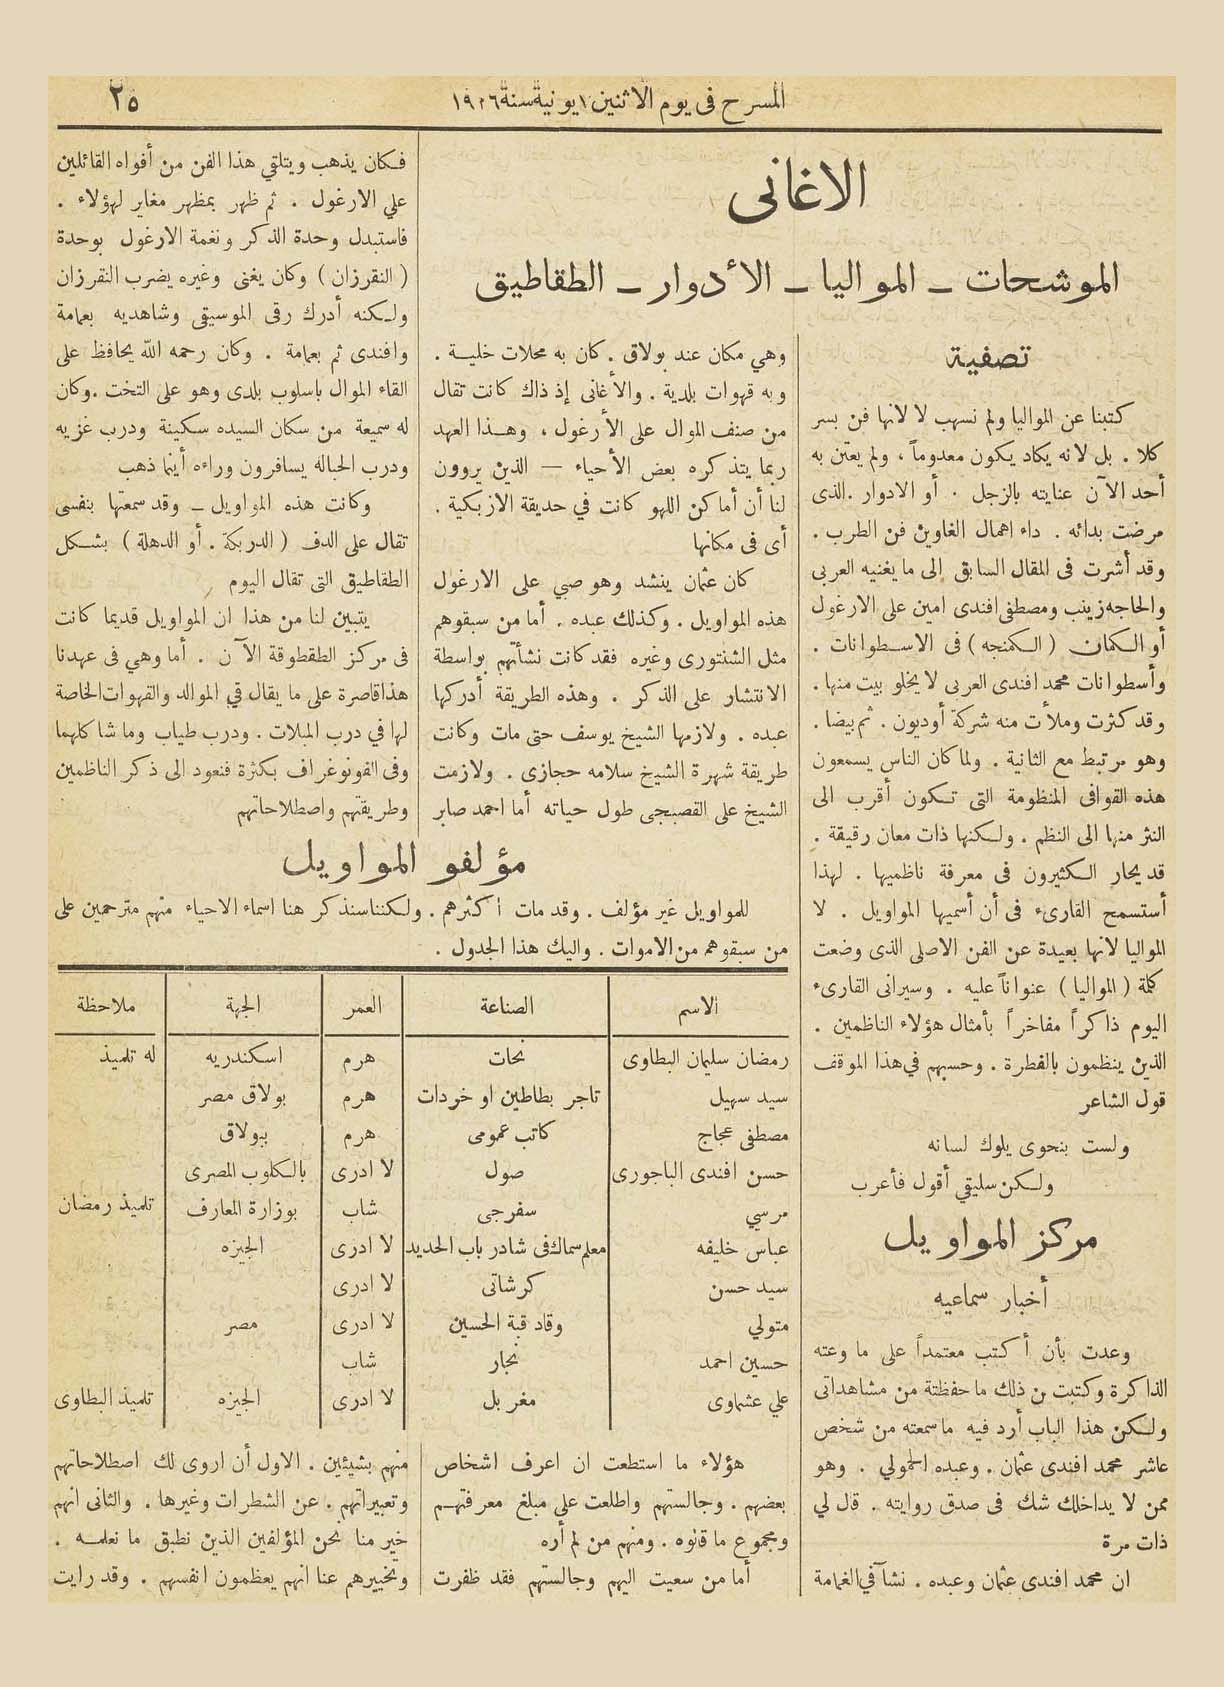 المسرح فى يوم الاثنين ١ يونية سنة ١٩٢٦
٢٥
الاغانى
الموشحات – المواليا – الأدوار – الطقاطيق
تصفية
كتبنا عن المواليا ولم نسهب لا لانها فن بسر
كلا . بل لانه يكاد يكون معدوماً ، ولم يعتن به
أحد الآن عنايته بالزجل . أو الادوار . الذى
مرضت بدائه . داء اهمال الغاوين فن الطرب .
وقد أشرت فى المقال السابق الى ما يغنيه العربى
والحاجه زينب ومصطفى افندى امين على الارغول
أو الكمان ( الكمنجه ) فى الاسطوانات .
وأسطوانات محمد افندى العربى لا يخلو بيت منها .
وقد كثرت وملأت منه شركة أوديون . ثم بيضا .
وهو مرتبط مع الثانية . ولما كان الناس يسمعون
هذه القوافى المنظومة التى تكون أقرب الى
النثر منها الى النظم . ولكنها ذات معان رقيقة .
قد يحار الكثيرون فى معرفة ناظميها . لهذا
أستسمح القارىء فى أن أسميها المواويل . لا
المواليا لانها بعيدة عن الفن الاصلى الذى وضعت
كلمة ( المواليا ) عنواناً عليه . وسيرانى القارىء
اليوم ذاكراً مفاخراً بأمثال هؤلاء الناظمين .
الذين ينظمون بالفطرة . وحسبهم في هذا الموقف
قول الشاعر
ولست بنحوى يلوك لسانه
ولكن سليقي أقول فأعرب
مركز المواويل
أخبار سماعيه
وعدت بأن أكتب معتمداً على ما وعته
الذاكرة وكتبت من ذلك ما حفظتة من مشاهداتى
ولكن هذا الباب أرد فيه ما سمعته من شخص
عاشر محمد افندى عثمان . وعبده الحمولي . وهو
ممن لا يداخلك شك فى صدق روايته . قال لي
ذات مرة
ان محمد افندى عثمان وعبده . نشآ في الغمامة
وهي مكان عند بولاق . كان به محلات خلية .
وبه قهوات بلدية . والأغانى إذ ذاك كانت تقال
من صنف الموال على الأرغول ، وهذا العهد
ربما يتذكره بعض الأحياء — الذين يروون
لنا أن أماكن اللهو كانت في حديقة الازبكية .
أى فى مكانها
كان عثمان ينشد وهو صبي على الارغول
هذه المواويل . وكذلك عبده . أما من سبقوهم
مثل الشنتورى وغيره فقد كانت نشأتهم بواسطة
الانتشار على الذكر . وهذه الطريقة أدركها
عبده . ولازمها الشيخ يوسف حتى مات وكانت
طريقة شهرة الشيخ سلامه حجازى . ولازمت
الشيخ على القصبجى طول حياته أما احمد صابر
فكان يذهب ويتلقي هذا الفن من أفواه القائلين
علي الارغول . ثم ظهر بمظهر مغاير لهؤلاء .
فاستبدل وحدة الذكر ونغمة الارغول بوحدة
( النقرزان ) وكان يغنى وغيره يضرب النقرزان
ولكنه أدرك رقى الموسيقى وشاهديه بعمامة
وافندى ثم بعمامة . وكان رحمه الله يحافظ على
القاء الموال باسلوب بلدى وهو على التخت . وكان
له سميعة من سكان السيده سكينة ودرب غزيه
ودرب الحباله يسافرون وراءه أينما ذهب
وكانت هذه المواويل – وقد سمعتها بنفسى
تقال على الدف ( الدربكة . أو الدهلة ) بشكل
الطقاطيق التى تقال اليوم
يتبين لنا من هذا ان المواويل قديما كانت
فى مركز الطقطوقة الآن . أما وهي فى عهدنا
هذا قاصرة على ما يقال في الموالد والقهوات الخاصة
لها في درب المبلات . ودرب طياب وما شاكلهما
وفى الفونوغراف بكثرة فنعود الى ذكر الناظمين
وطريقتهم واصطلاحاتهم
مؤلفو المواويل
للمواويل غير مؤلف . وقد مات أكثرهم . ولكننا سنذكر هنا اسماء الاحياء منهم مترحمين على
من سبقوهم من الاموات . واليك هذا الجدول .
الاسم الصناعة العمر الجهة ملاحظة
رمضان سليمان البطاوى نحات هرم اسكندريه له تلميذ
سيد سهيل تاجر بطاطين او خردات هرم بولاق مصر
مصطفى عجاج كاتب عمومى هرم ببولاق
حسن افندى الباجورى صول لا ادرى بالكلوب المصرى
مرسي سفرجى شاب بوزارة المعارف تلميذ رمضان
عباس خليفه معلم سماك فى شادر باب الحديد لا ادرى الجيزه
سيد حسن كرشاتى لا ادرى
متولي وقاد قبة الحسين لا ادرى مصر
حسين احمد نجار شاب
علي عشماوى مغربل لا ادرى الجيزه تلميذ البطاوى
هؤلاء ما استطعت ان اعرف اشخاص
بعضهم . وجالستهم واطلعت على مبلغ معرفتهم
ومجموع ما قالوه . ومنهم من لم أره
أما من سعيت اليهم وجالستهم فقد ظفرت
منهم بشيئين . الاول أن اروى لك اصطلاحاتهم
وتعبيراتهم . عن الشطرات وغيرها . والثانى انهم
خير منا نحن المؤلفين الذين نطبق ما نعلمه .
وتخييرهم عنا انهم يعظمون انفسهم . وقد رايت